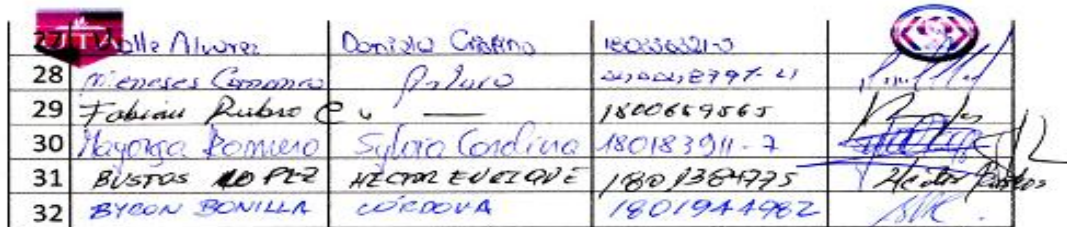 27 Valle Alvarez Daniela Cristina
28 Meneses Arturo
29 Fabian Rubio C 1800659565
30 Mayorga Romero Sylvia Carolina 180183911-7
31 BUSTOS LOPEZ HECTOR ENRIQUE 1801384775 Hector Bustos
32 BYRON BONILLA CORDOVA 1801944982